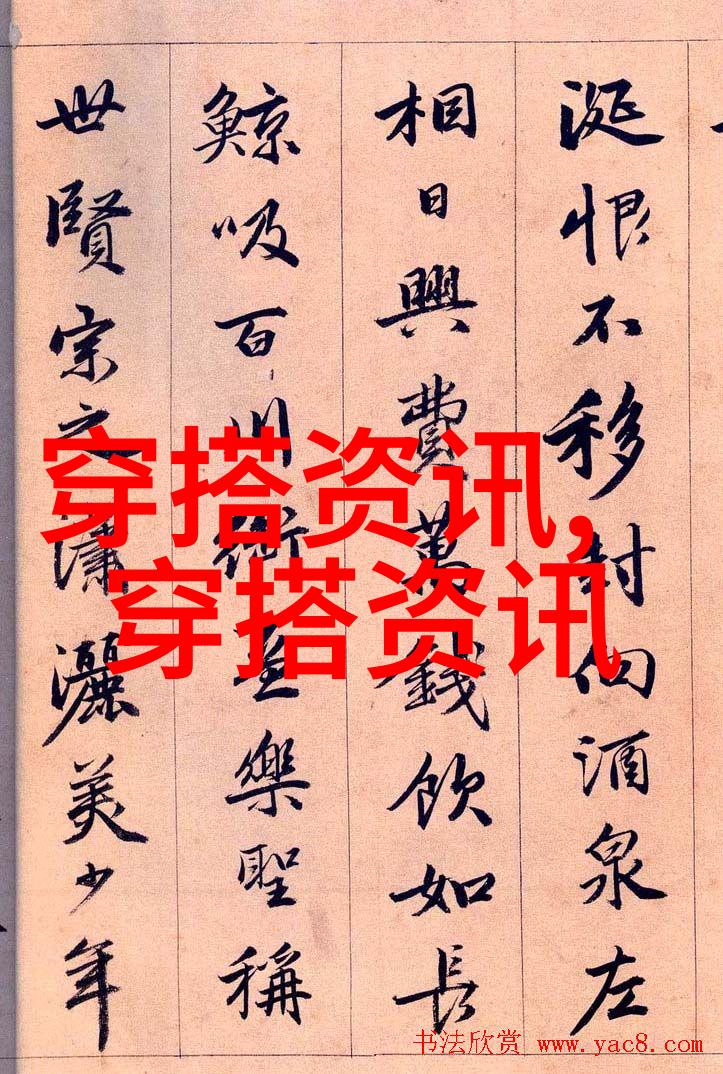 涎恨不移封向酒泉左
相日興費萬錢飲如長
鯨吸百川銜盃樂聖稱
世賢宗之瀟灑美少年
穿搭资讯,
穿搭资讯
书法欣赏 www.yac8.com